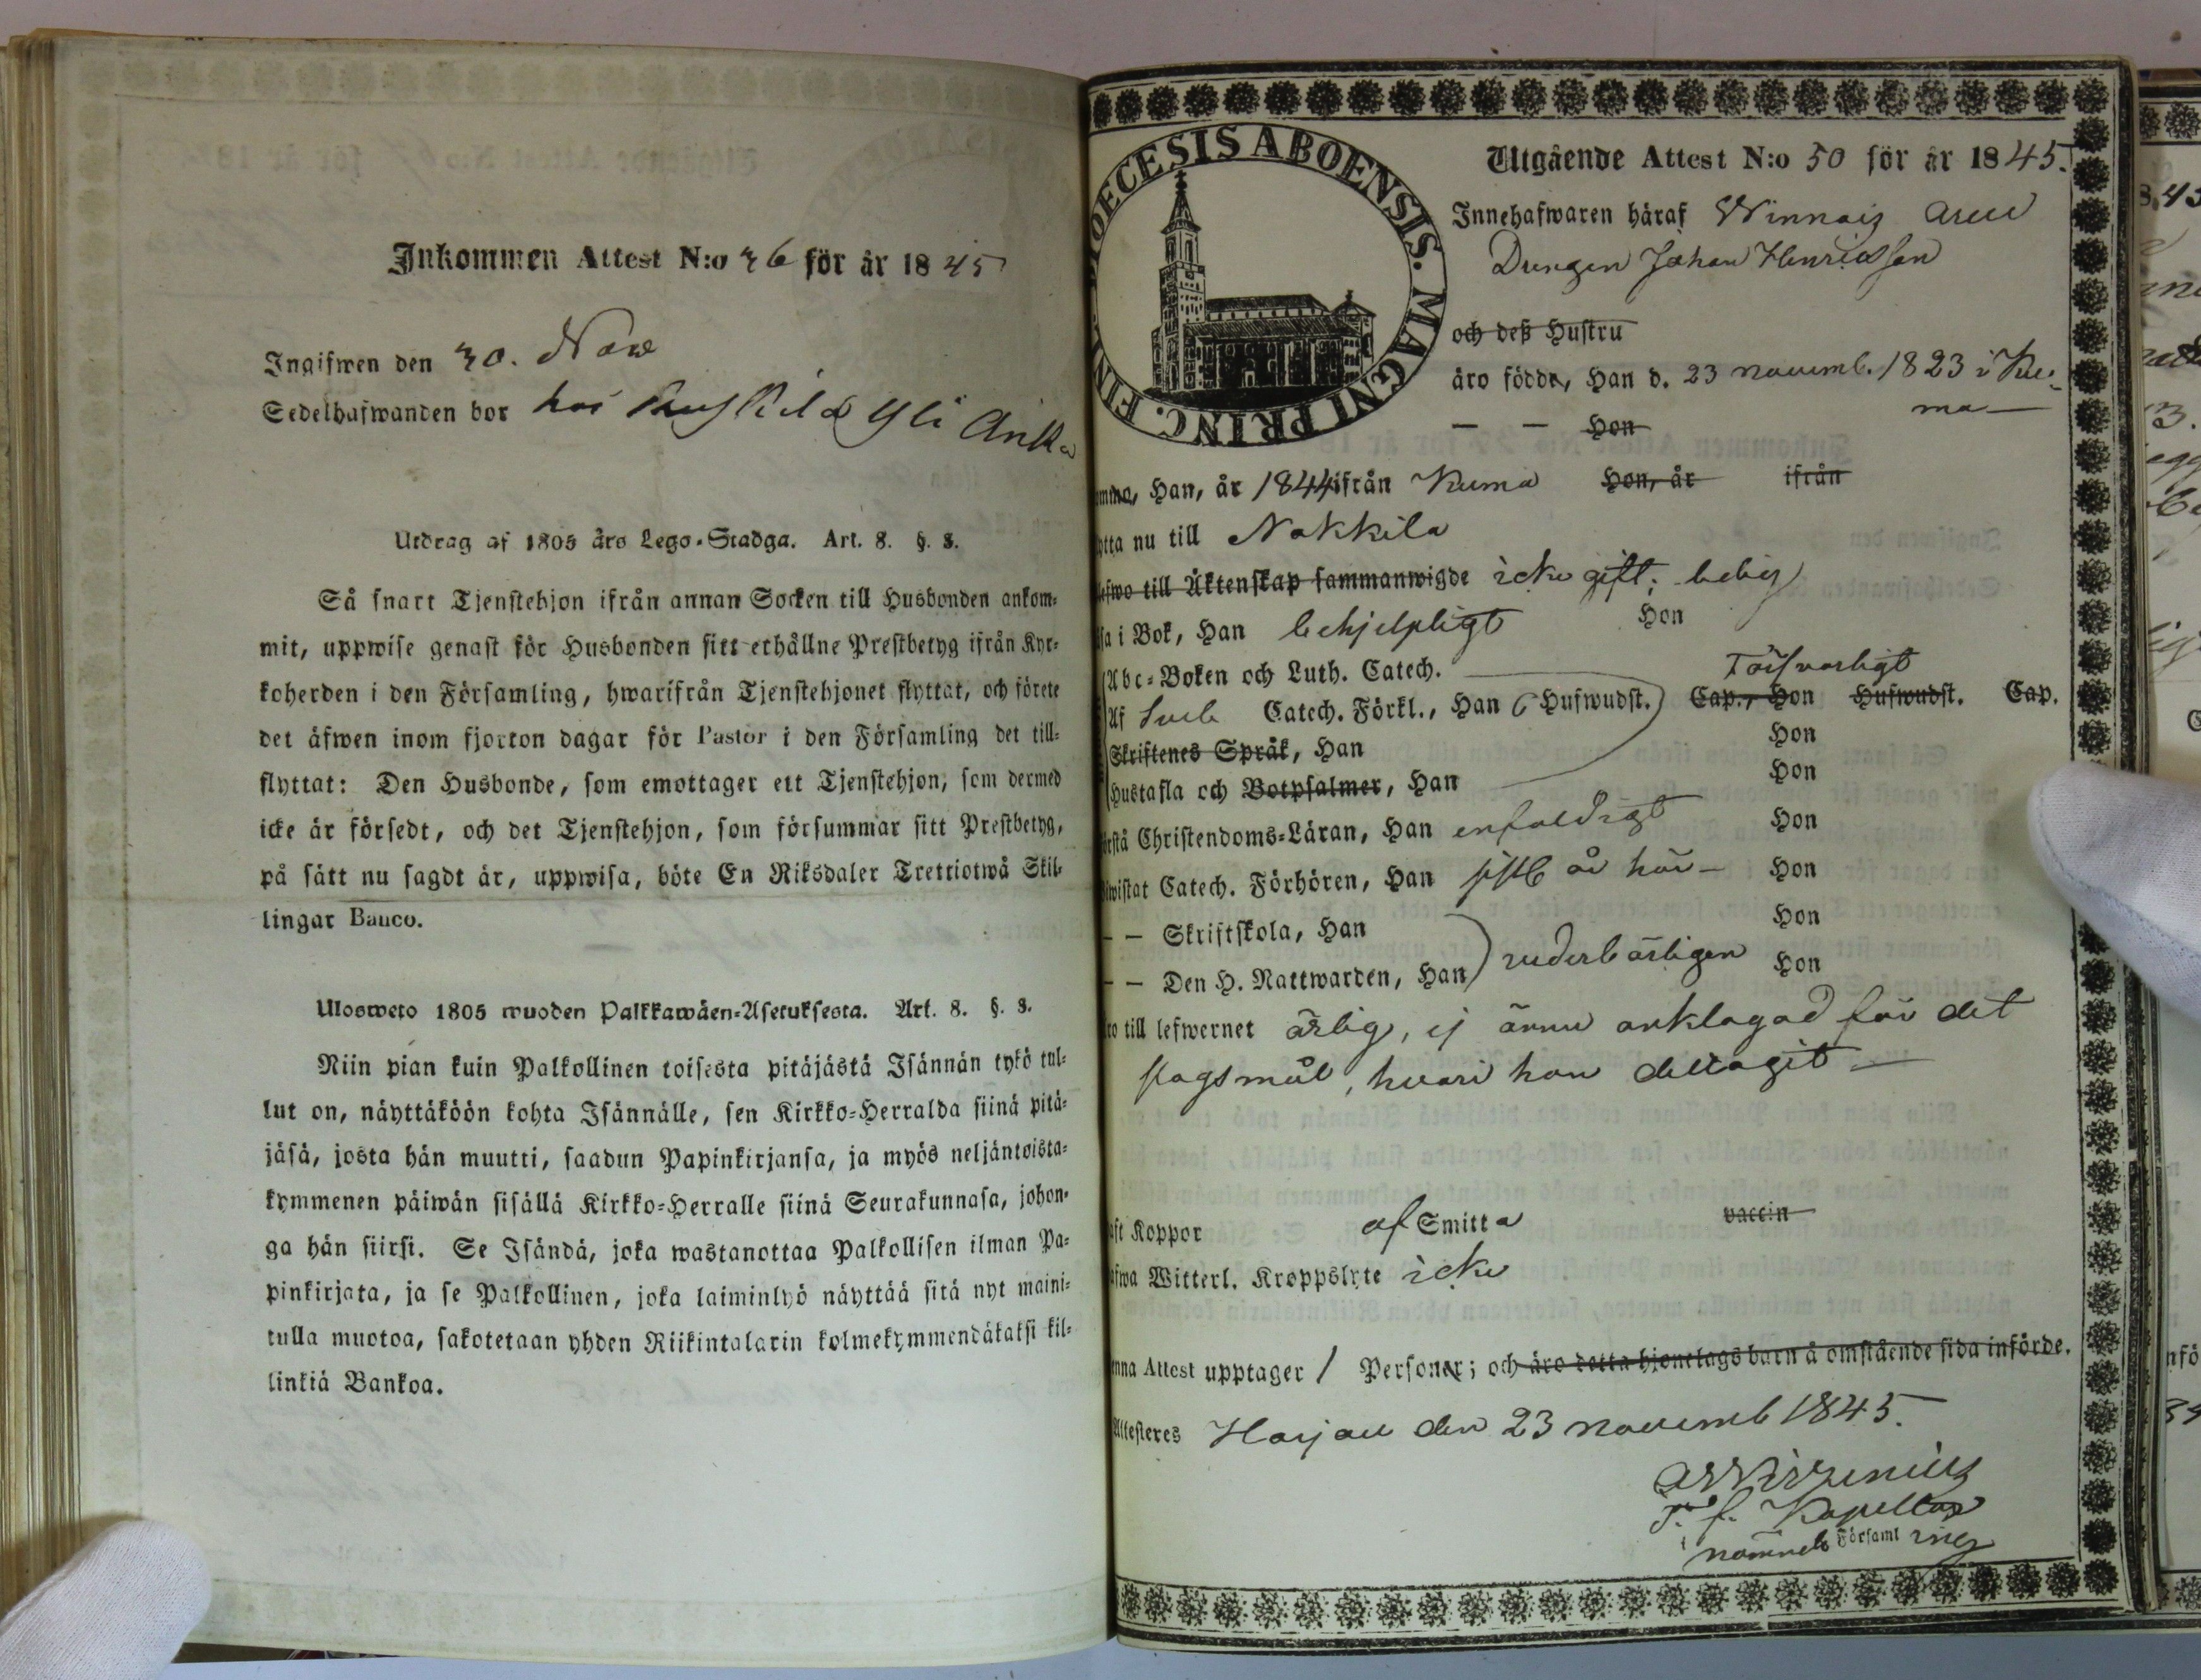 Inkommen Attest N:o 36 för år 1845
Ingifwen den 30. Nov
Sedelhafwanden bor hos Ruskila Yli Anka
Utdrag af 1805 års Lego-Stadga. Art. 8. §. 3.
Så snart Tjenstehjon ifrån annan Socken till Husbonden ankom-
mit, uppwise genast för Husbonden sitt erhållne Prestbetyg ifrån Kyr-
koherden i den Församling, hwarifrån Tjenstehjonet flyttat, och förete
det äfwen inom fjorton dagar för Pastor i den Församling det till-
flyttat: Den Husbonde, som emottager ett Tjenstehjon, som dermed
icke är försedt, och det Tjenstehjon, som försummar sitt Prestbetyg,
på sätt nu sagdt är, uppwisa, böte En Riksdaler Trettiotwå Skil-
lingar Banco.
Ulosweto 1805 wuoden Palkkawäen-Asetuksesta. Art. 8. §. 3.
Niin pian kuin Palkollinen toisesta pitäjästä Isännän tykö tul-
lut on, näyttäköön kohta Isännälle, sen Kirkko-Herralda siinä pitä-
jäsä, josta hän muutti, saadun Papinkirjansa, ja myös neljäntoista-
kymmenen päiwän sisällä Kirkko-Herralle siinä Seurakunnasa, johon-
ga hän siirsi. Se Isändä, joka wastanottaa Palkollisen ilman Pa-
pinkirjata, ja se Palkollinen, joka laiminlyö näyttää sitä nyt maini-
tulla muotoa, sakotetaan yhden Riikintalarin kolmekymmendäkaksi kil-
linkiä Bankoa.
DIOECESIS ABOENSIS. MAGNI PRINC. FINL.
Utgående Attest N:o 50 för år 1845.
Innehafwaren häraf Winnais arue
Drengen Johan Henricsson
och deß Hustru
äro födde, Han d. 23 novemb. 1823 i Kiu-
ma
— — Hon
omma, Han, år 1844 ifrån Kiuma Hon, år ifrån
ytta nu till Nakkila
lefwo till Äktenskap sammanwigde icke gift; ledig
äsa i Bok, Han behjelpligt Hon
Abc-Boken och Luth. Catech. Försvarligt
Af Sveb Catech. Förkl., Han 6 Hufwudst. Cap., Hon Hufwudst. Cap.
Skriftenes Språk, Han Hon
Hustafla och Botpsalmer, Han Hon
örstå Christendoms-Läran, Han enfaldigt Hon
iwistat Catech. Förhören, Han sistl. år här Hon
— — Skriftskola, Han Hon
— — Den H. Nattwarden, Han vederbörligen Hon
äro till lefwernet ärlig, ej ännu anklagad för det
slagsmål, hvari han deltagit —
aft Koppor af Smitta vaccin
afwa Witterl. Kroppslyte icke
enna Attest upptager 1 Personer; och äro detta hjonelags barn å omstående sida införde.
Attesteres Harjau den 23 novemb 1845.
T. f. Kapellan
i nämnde Församling